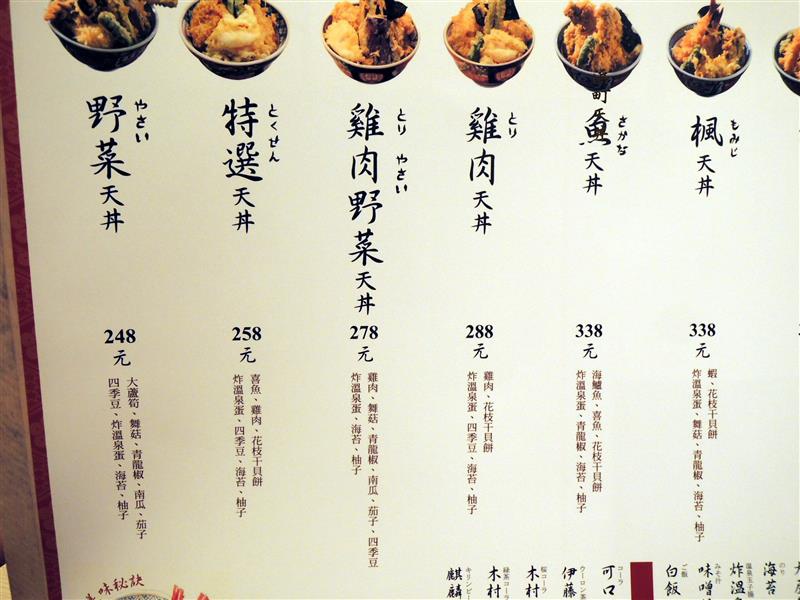 楓天丼
もみじ
338
元
蝦、花枝干貝餅
炸溫泉蛋、舞菇、青龍椒、海苔、柚子
魚天丼
さかな
338
元
海鱺魚、喜魚、花枝干貝餅
炸溫泉蛋、海苔、柚子
雞肉天丼
とり
288
元
雞肉、花枝干貝餅
炸溫泉蛋、四季豆、海苔、柚子
雞肉野菜天丼
とり やさい
278
元
雞肉、舞菇、青龍椒、南瓜、茄子、四季豆
炸溫泉蛋、海苔、柚子
特選天丼
とくせん
258
元
喜魚、雞肉、花枝干貝餅
炸溫泉蛋、四季豆、海苔、柚子
野菜天丼
やさい
248
元
大蘆筍、舞菇、青龍椒、南瓜、茄子
四季豆、炸溫泉蛋、海苔、柚子
海苔
のり
炸溫
温泉玉子
味噌
みそ汁
白飯
ご飯
可口
コーラ
伊藤
ウーロン茶
木村
桜コーラ
木村
緑茶コーラ
麒麟
キリンビー
味秘訣